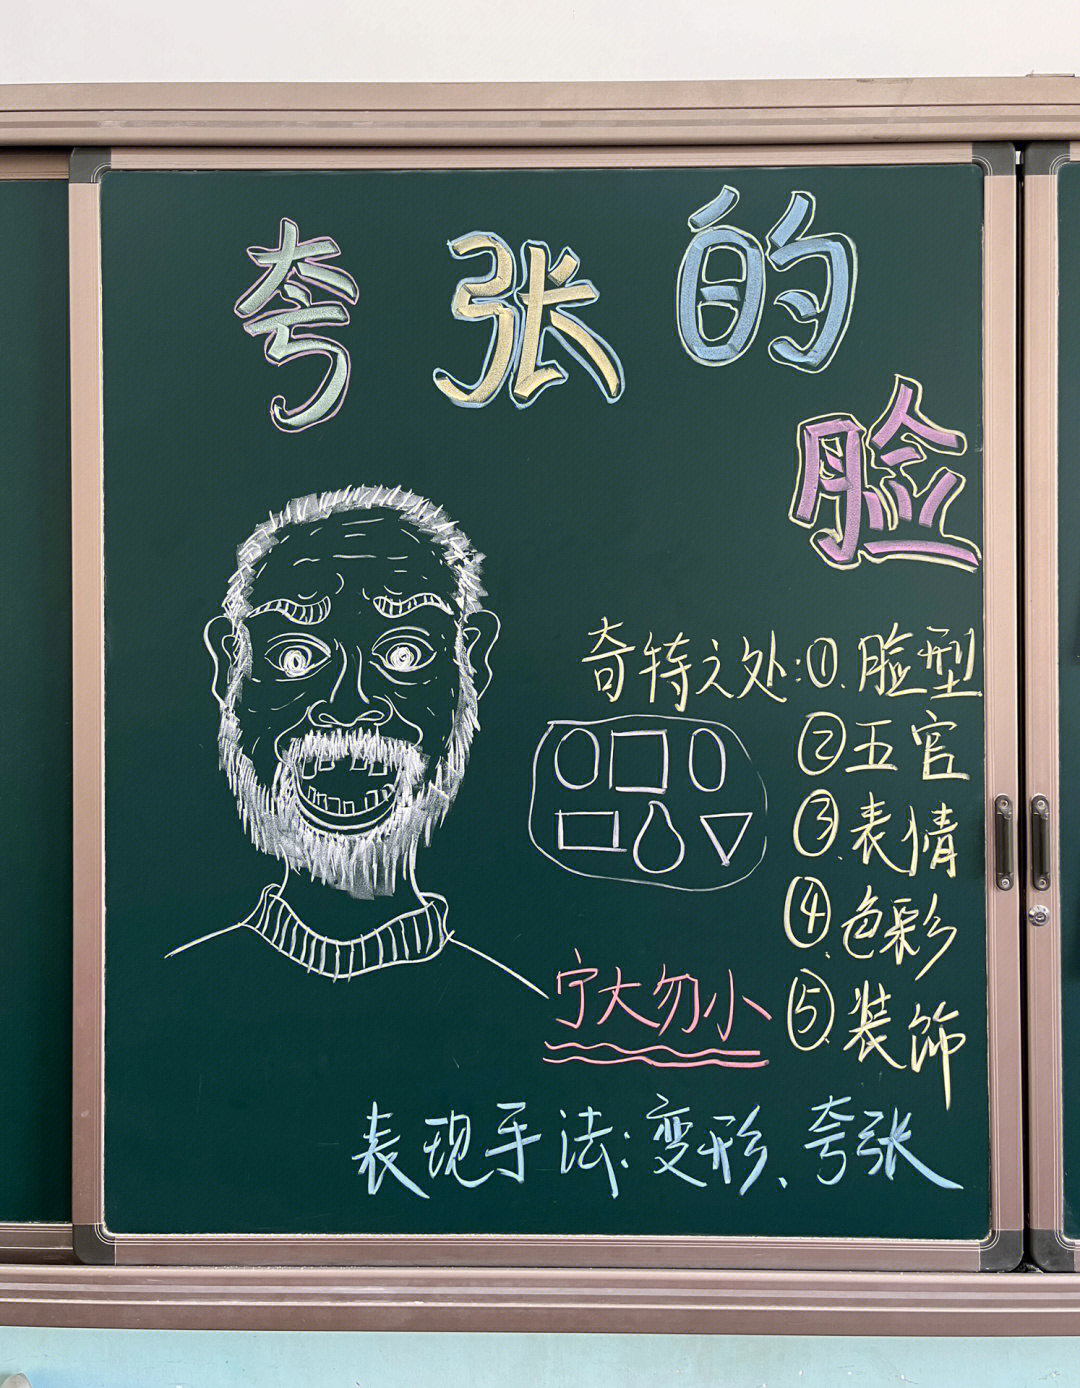 夸张的
脸
奇特之处:①.脸型
②五官
③.表情
④.色彩
⑤.装饰
宁大勿小
表现手法:变形、夸张